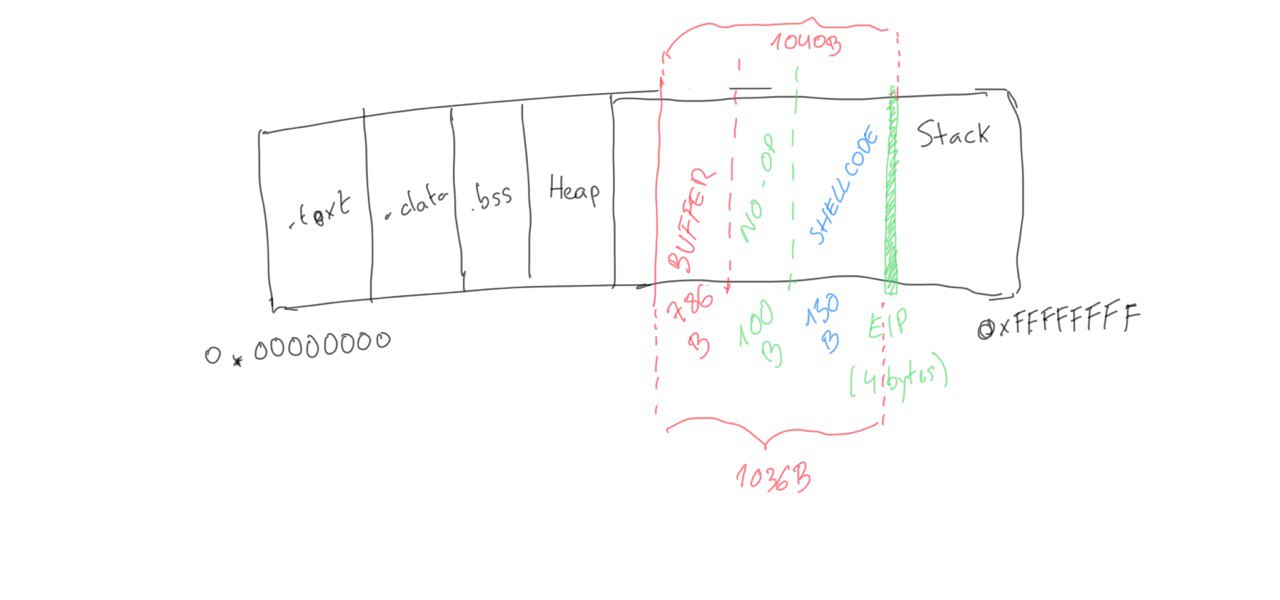 1040B
.text
.data
.bss
Heap
BUFFER
NO-OP
SHELLCODE
Stack
786
B
100
B
150
B
EIP
(4 bytes)
0x00000000
0xFFFFFFFF
1036B